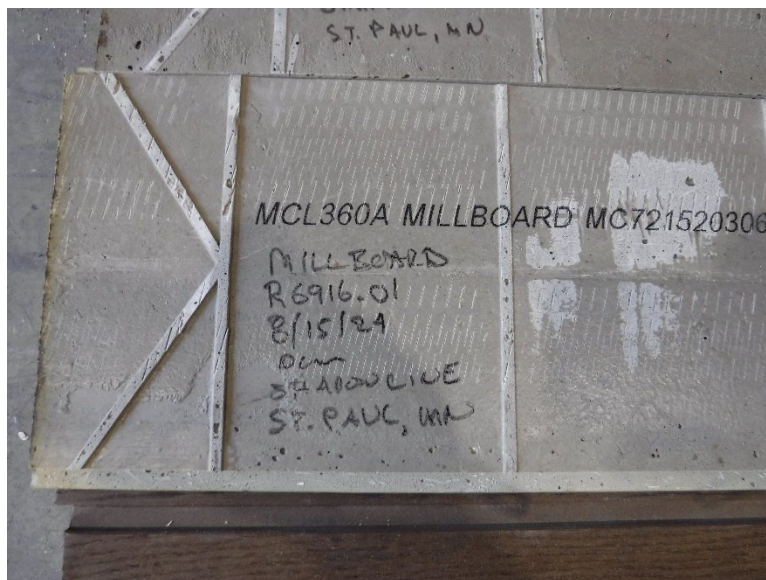 ST. PAUL, MN
MCL360A MILLBOARD MC721520306
MILLBOARD
R6916.01
8/15/24
SHADOWLINE
ST. PAUL, MN